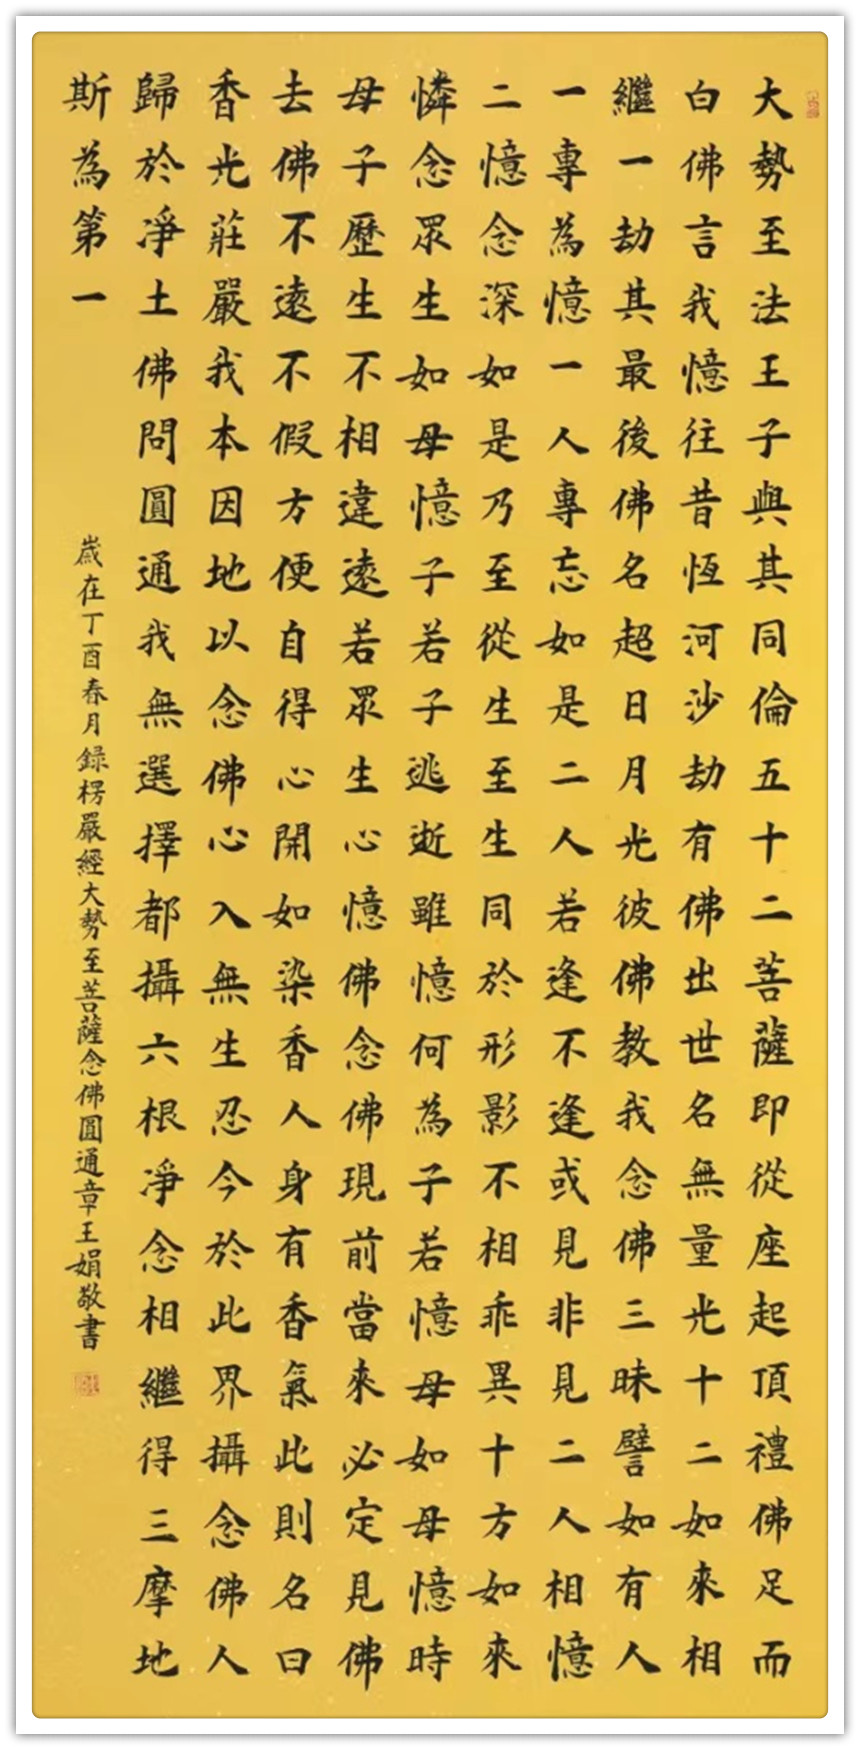 大勢至法王子與其同倫五十二菩薩即從座起頂禮佛足而
白佛言我憶往昔恆河沙劫有佛出世名無量光十二如來相
繼一劫其最後佛名超日月光彼佛教我念佛三昧譬如有人
一專為憶一人專忘如是二人若逢不逢或見非見二人相憶
二憶念深如是乃至從生至生同於形影不相乖異十方如來
憐念眾生如母憶子若子逃逝雖憶何為子若憶母如母憶時
母子歷生不相違遠若眾生心憶佛念佛現前當來必定見佛
去佛不遠不假方便自得心開如染香人身有香氣此則名曰
香光莊嚴我本因地以念佛心入無生忍今於此界攝念佛人
歸於淨土佛問圓通我無選擇都攝六根淨念相繼得三摩地
斯為第一
歲在丁酉春月録楞嚴經大勢至菩薩念佛圓通章王娟敬書